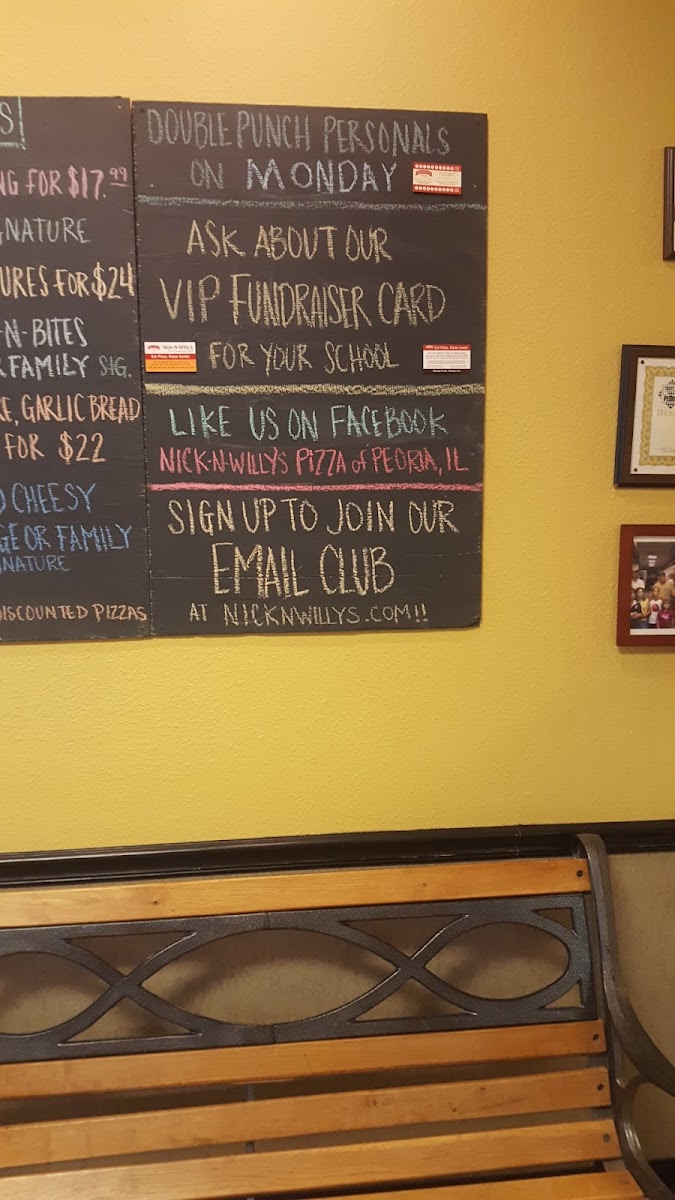 S
NG FOR $17.99
GNATURE
URES FOR $24
-N-BITES
R FAMILY SIG.
RE, GARLIC BREAD
FOR $22
D CHEESY
GE OR FAMILY
NATURE
DISCOUNTED PIZZAS
DOUBLE PUNCH PERSONALS
ON MONDAY
ASK ABOUT OUR
VIP FUNDRAISER CARD
FOR YOUR SCHOOL
Nick-N-Willy's
Eat Pizza, Raise funds!
Eat Pizza, Raise funds!
LIKE US ON FACEBOOK
NICK-N-WILLY'S PIZZA of PEORIA, IL
SIGN UP TO JOIN OUR
EMAIL CLUB
AT NICKNWILLYS.COM!!